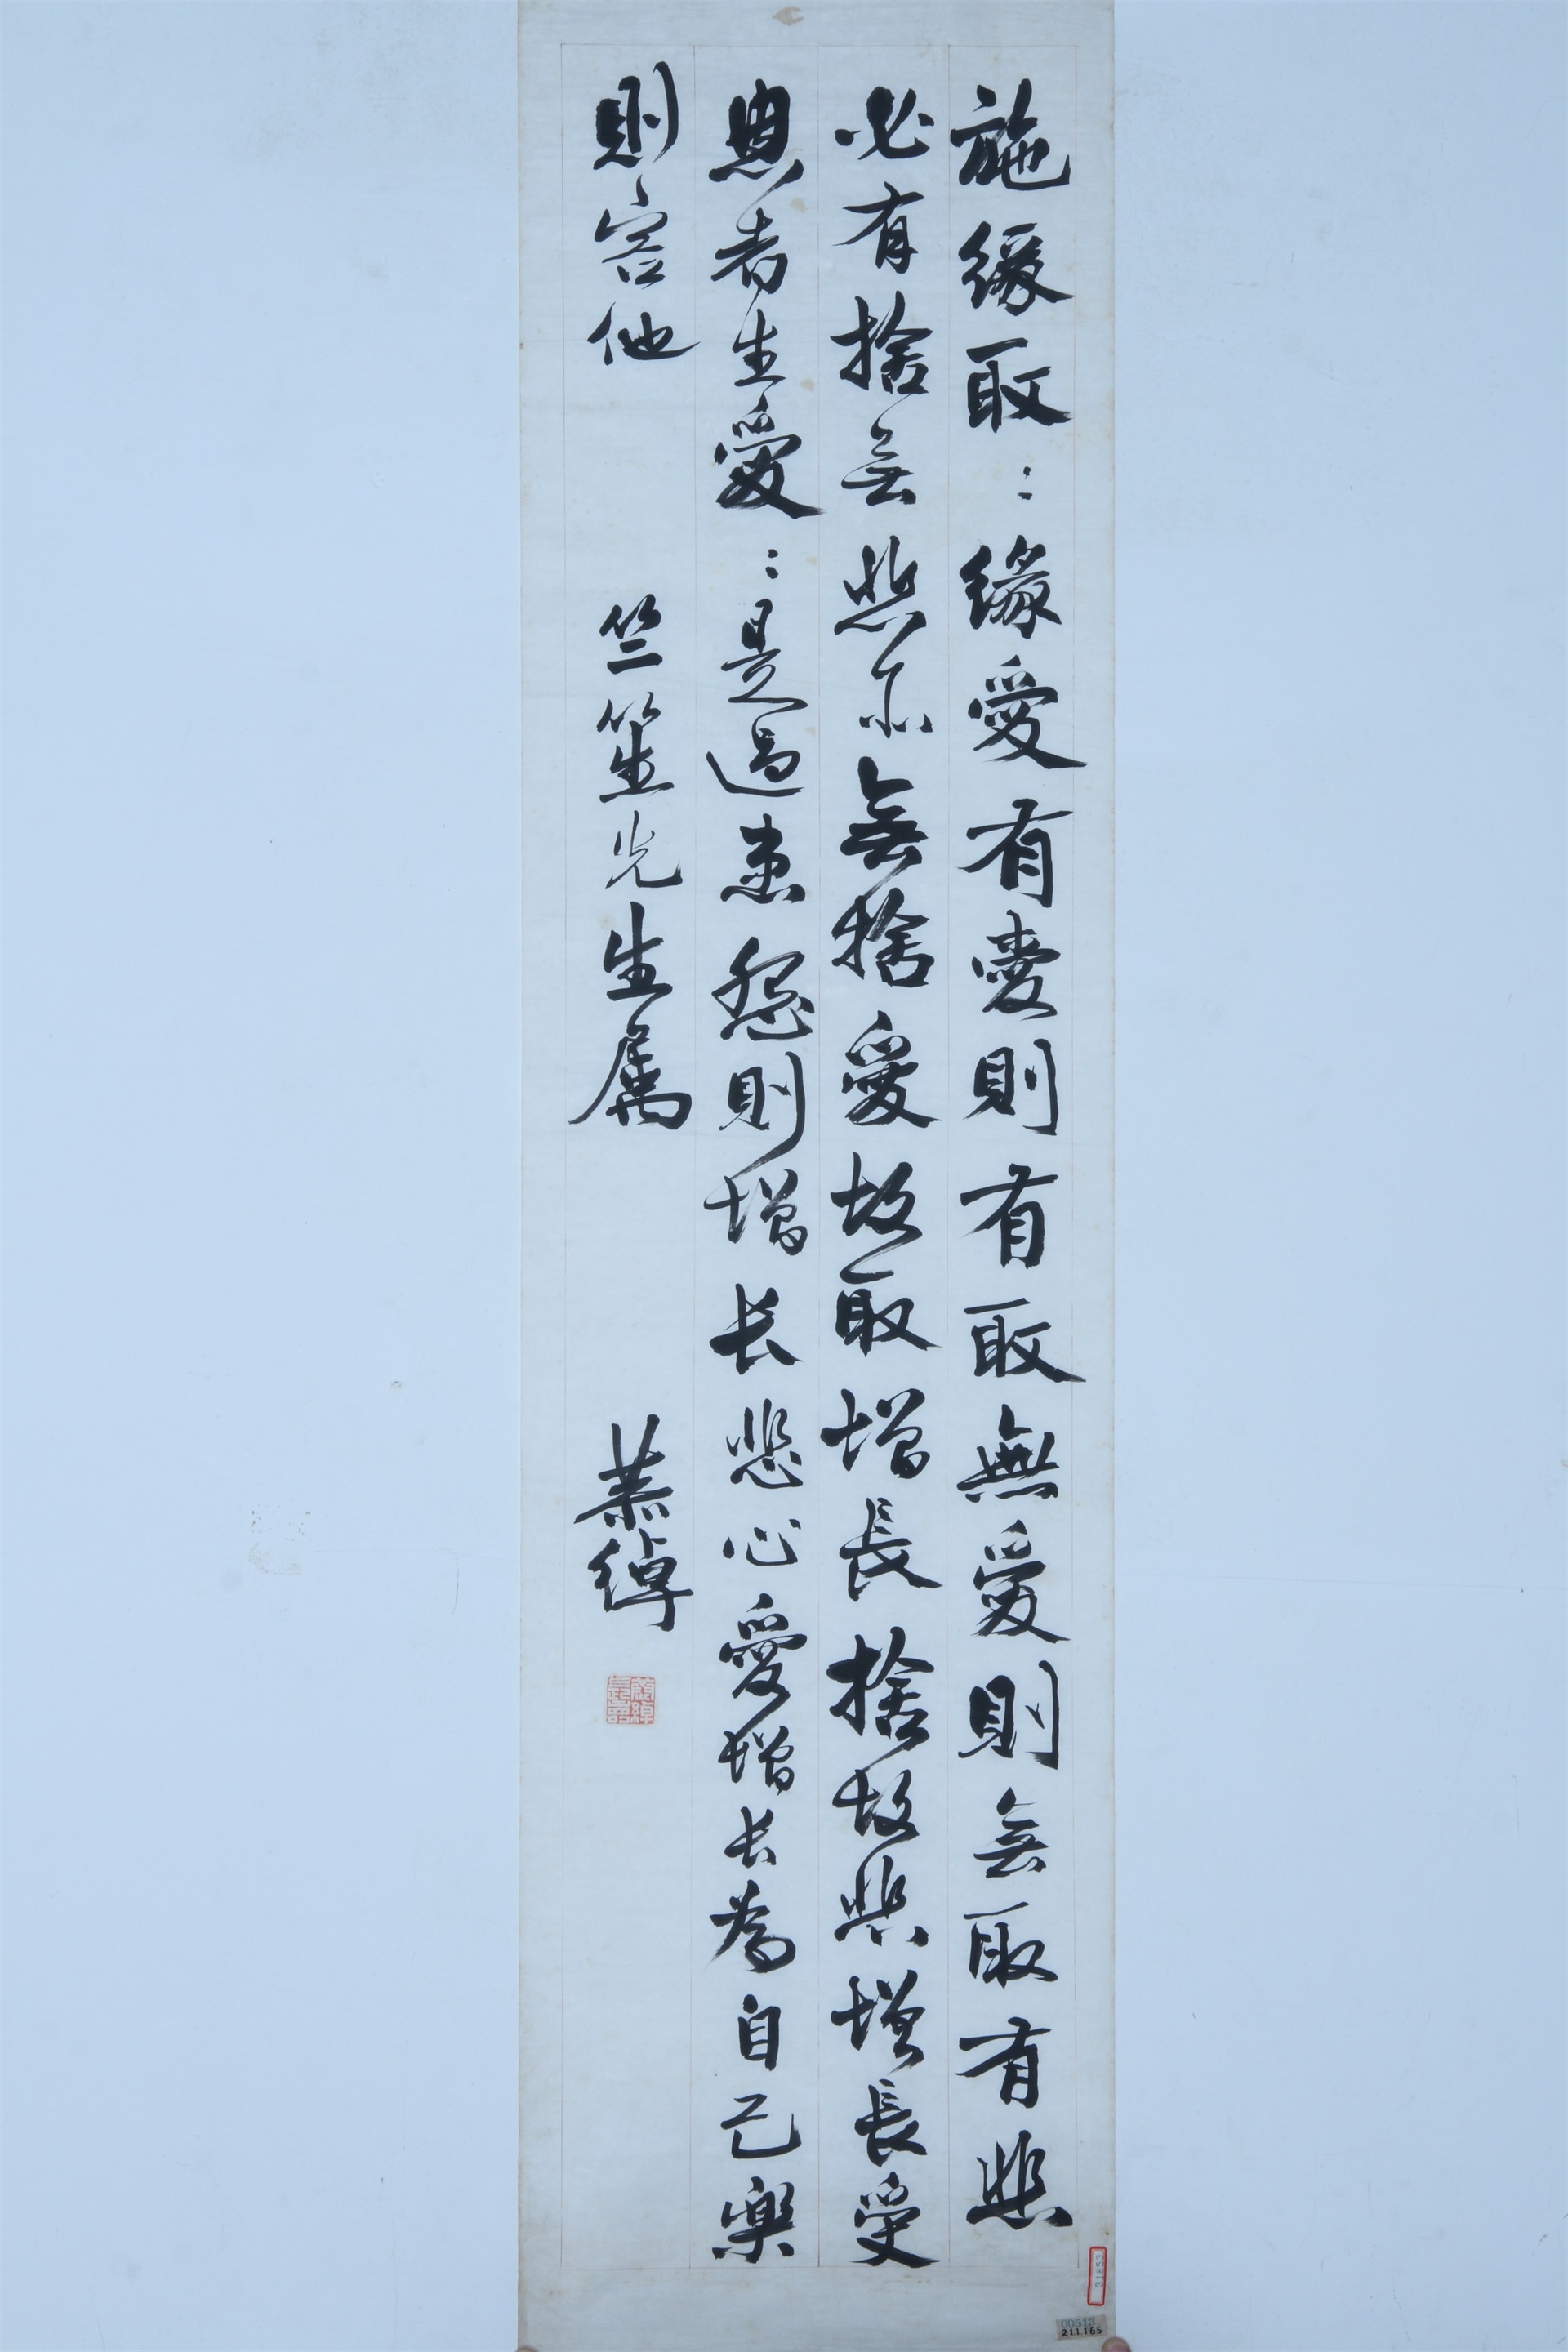 施缘取:缘愛有愛則有取無愛則無取有悲
必有捨無悲亦無捨愛故取增長捨故悲增長受
恩者生愛:是過患怨則增长悲心愛增长為自己樂
則害他 竺笙先生属 葉恭綽
31853
00513
211.165